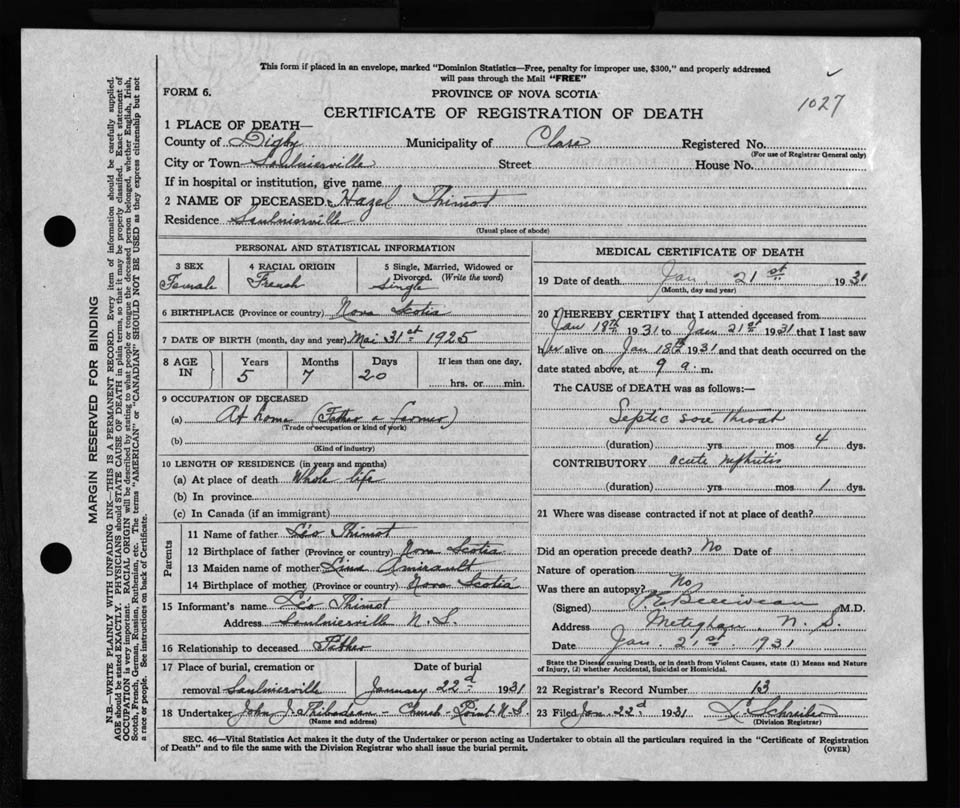 This form if placed in an envelope, marked "Dominion Statistics—Free, penalty for improper use, $300," and properly addressed
will pass through the Mail "FREE"
1027
FORM 6.
PROVINCE OF NOVA SCOTIA
CERTIFICATE OF REGISTRATION OF DEATH
1 PLACE OF DEATH—
County of Digby Municipality of Clare Registered No.
(For use of Registrar General only)
City or Town Saulnierville Street House No.
If in hospital or institution, give name
2 NAME OF DECEASED Hazel Thimot
Residence Saulnierville
(Usual place of abode)
PERSONAL AND STATISTICAL INFORMATION
3 SEX 4 RACIAL ORIGIN 5 Single, Married, Widowed or
Divorced. (Write the word)
Female French Single
6 BIRTHPLACE (Province or country) Nova Scotia
7 DATE OF BIRTH (month, day and year) Mai 31st 1925
8 AGE IN Years Months Days If less than one day,
5 7 20 hrs. or min.
9 OCCUPATION OF DECEASED
(a) At home (Father a farmer)
(Trade or occupation or kind of work)
(b)
(Kind of industry)
10 LENGTH OF RESIDENCE (in years and months)
(a) At place of death Whole life
(b) In province
(c) In Canada (if an immigrant)
Parents
11 Name of father Léo Thimot
12 Birthplace of father (Province or country) Nova Scotia
13 Maiden name of mother Lina Amirault
14 Birthplace of mother (Province or country) Nova Scotia
15 Informant's name Léo Thimot
Address Saulnierville N.S.
16 Relationship to deceased Father
17 Place of burial, cremation or Date of burial
removal Saulnierville January 22d 1931
18 Undertaker John J. Thibodeau - Church-Point N.S.
(Name and address)
MEDICAL CERTIFICATE OF DEATH
19 Date of death Jan. 21st 1931
(Month, day and year)
20 I HEREBY CERTIFY that I attended deceased from
Jan 18th 1931 to Jan 21st 1931 that I last saw
her alive on Jan 18th 1931 and that death occurred on the
date stated above, at 9 a. m.
The CAUSE of DEATH was as follows:—
Septic sore Throat
(duration) yrs mos 4 dys.
CONTRIBUTORY acute nephritis
(duration) yrs mos 1 dys.
21 Where was disease contracted if not at place of death?
Did an operation precede death? No Date of
Nature of operation
Was there an autopsy? No
(Signed) M.D.
Address Meteghan, N. S.
Date Jan. 21st. 1931
State the Disease causing Death, or in death from Violent Causes, state (1) Means and Nature
of Injury, (2) whether Accidental, Suicidal or Homicidal.
22 Registrar's Record Number 13
23 Filed Jan. 22d 1931
(Division Registrar)
SEC. 46—Vital Statistics Act makes it the duty of the Undertaker or person acting as Undertaker to obtain all the particulars required in the "Certificate of Registration
of Death" and to file the same with the Division Registrar who shall issue the burial permit.
(OVER)
MARGIN RESERVED FOR BINDING
N.B.—WRITE PLAINLY WITH UNFADING INK—THIS IS A PERMANENT RECORD. Every item of information should be carefully supplied.
AGE should be stated EXACTLY. PHYSICIANS should STATE CAUSE OF DEATH in plain terms, so that it may be properly classified. Exact statement of
OCCUPATION is very important. RACIAL ORIGIN will be described by stating to what people or tongue the deceased person belonged, whether English, Irish,
Scotch, French, German, Russian, Ruthenian, etc. The terms "AMERICAN" or "CANADIAN" SHOULD NOT BE USED as they express citizenship but not
a race or people. See instructions on back of Certificate.